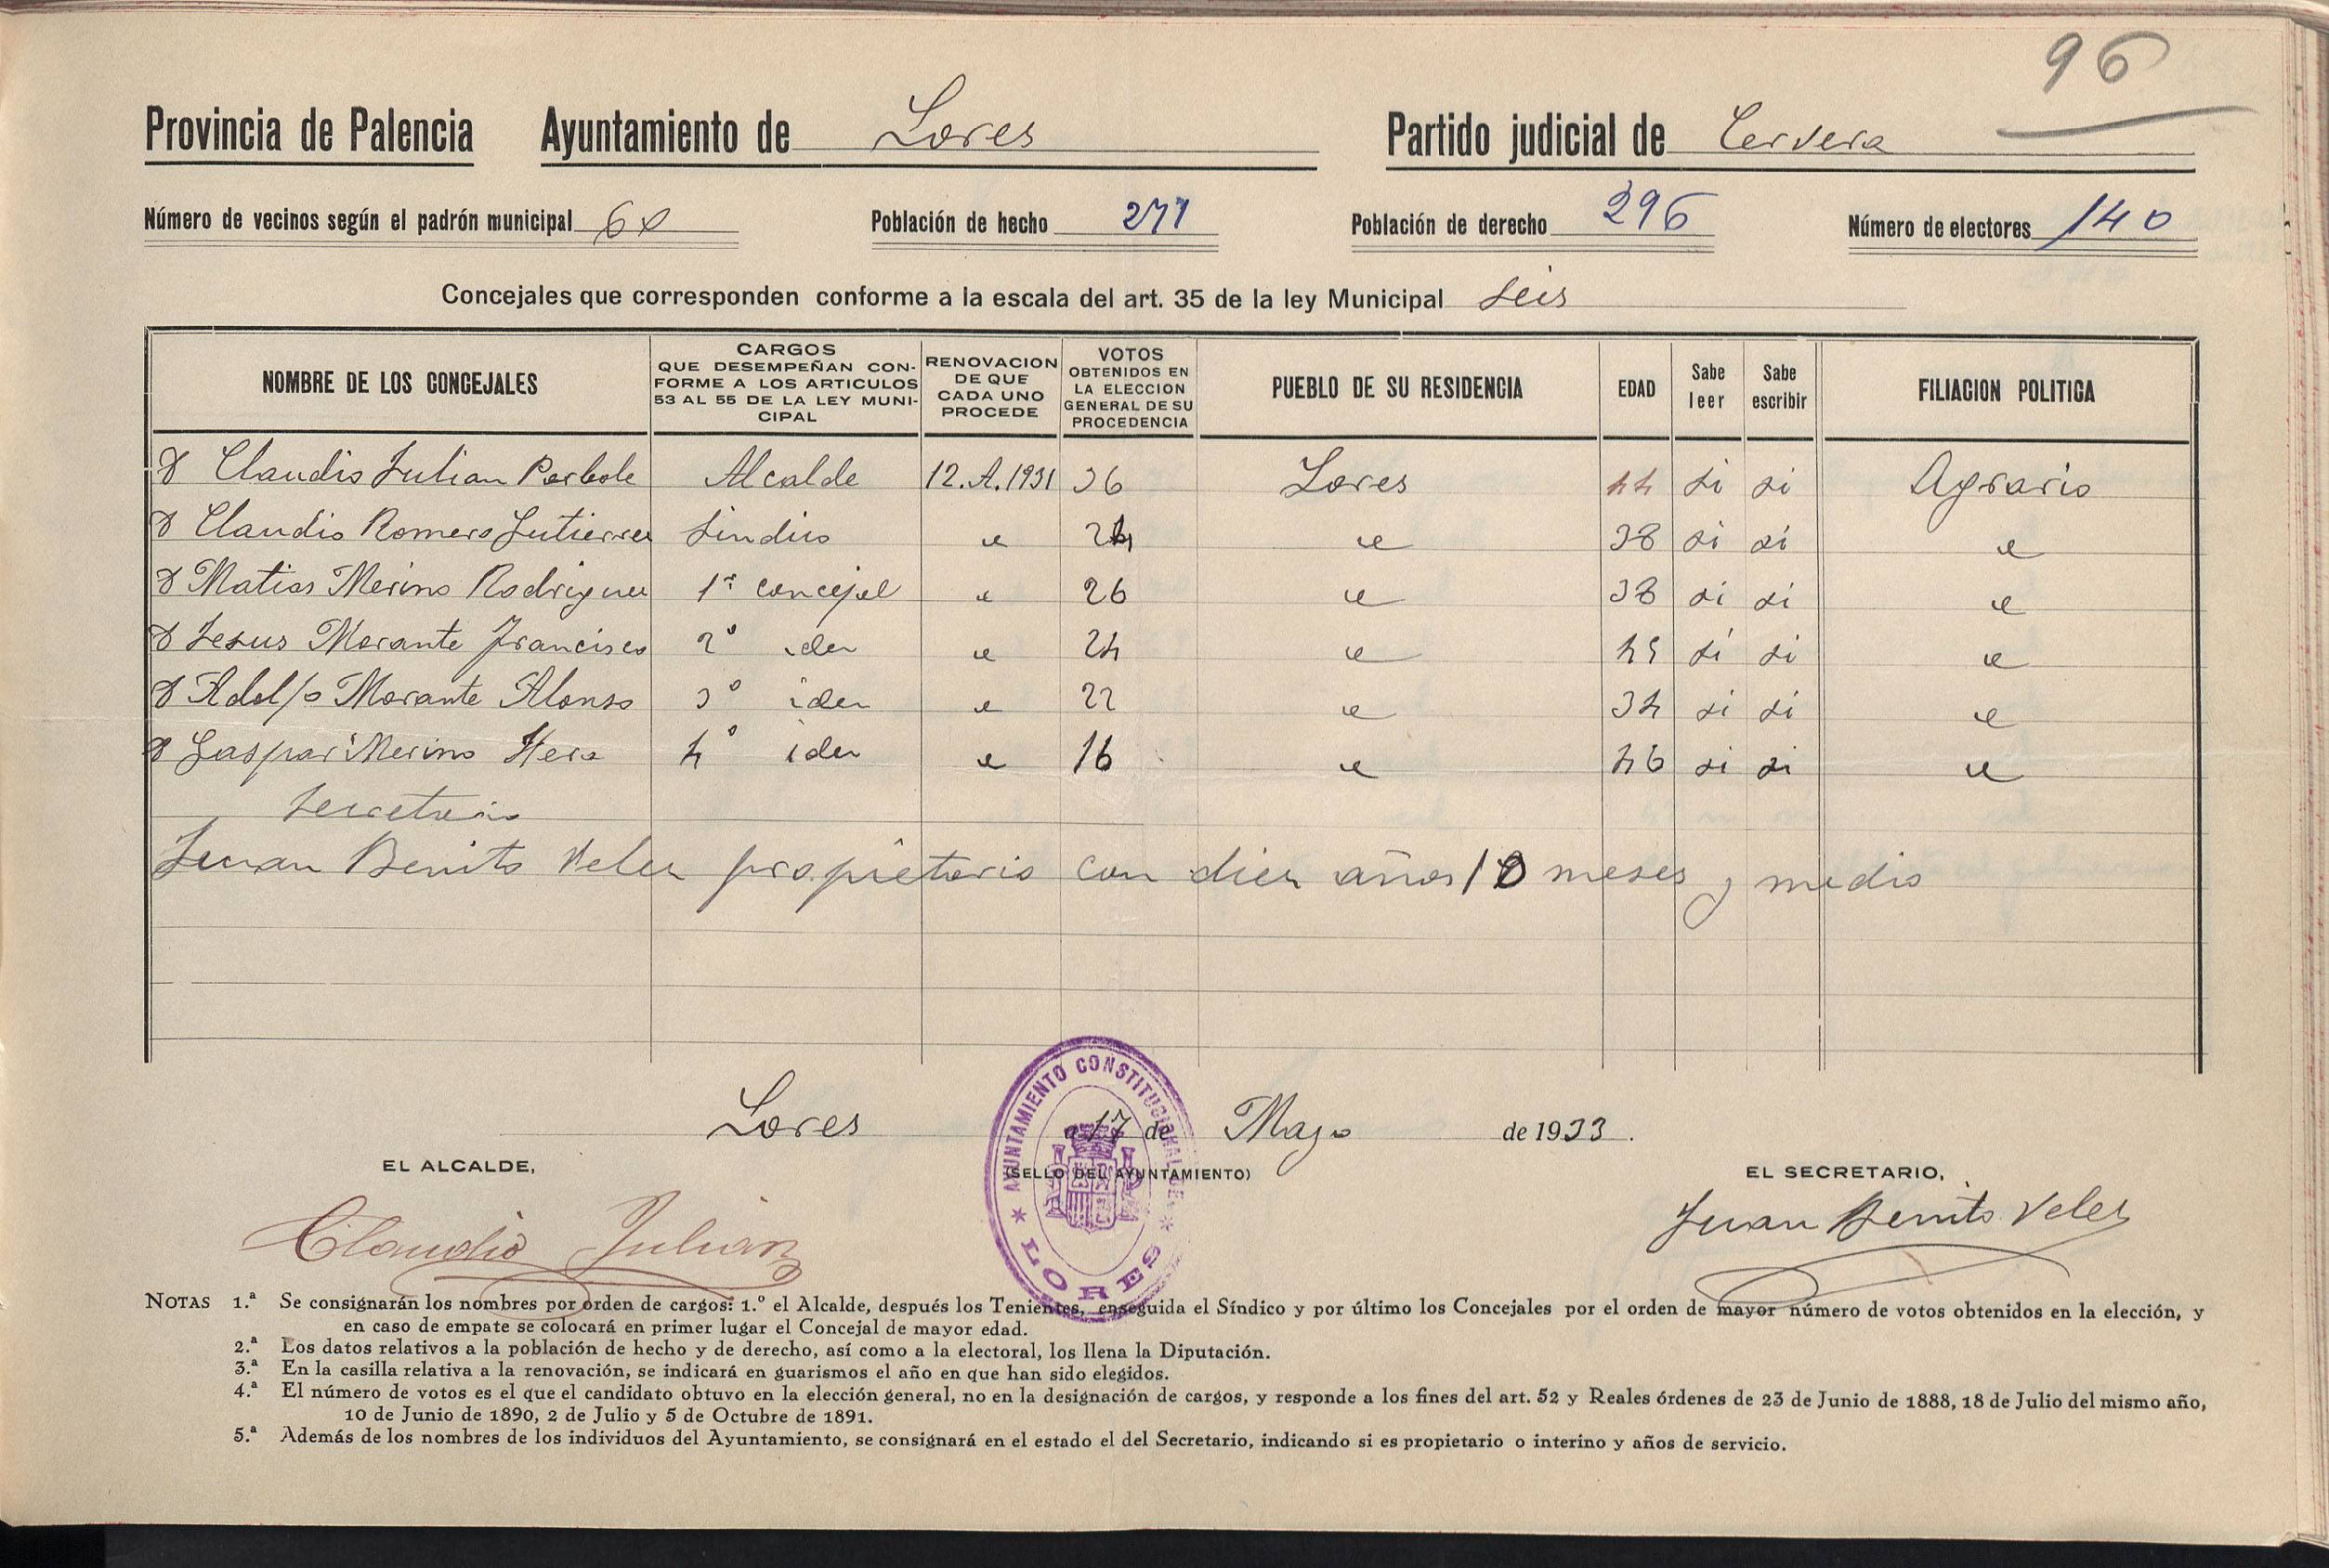 96
Provincia de Palencia Ayuntamiento de Lores Partido judicial de Cervera
Número de vecinos según el padrón municipal 60 Población de hecho 277 Población de derecho 296 Número de electores 140
Concejales que corresponden conforme a la escala del art. 35 de la ley Municipal seis
NOMBRE DE LOS CONCEJALES
CARGOS
QUE DESEMPEÑAN CON-
FORME A LOS ARTICULOS
53 AL 55 DE LA LEY MUNI-
CIPAL
RENOVACION
DE QUE
CADA UNO
PROCEDE
VOTOS
OBTENIDOS EN
LA ELECCION
GENERAL DE SU
PROCEDENCIA
PUEBLO DE SU RESIDENCIA
EDAD
Sabe
leer
Sabe
escribir
FILIACION POLITICA
D Claudio Julian Alcalde 12.A.1931 36 Lores 44 si si Agrario
D Claudio Romero Gutierrez Sindico " 24 " 38 si si "
D Matias Merino Rodriguez 1º concejal " 26 " 38 si si "
D Jesus Morante Francisco 2º iden " 24 " 45 si si "
D Adolfo Morante Alonso 3º iden " 22 " 34 si si "
D Gaspar Merino Hera 4º iden " 16 " 46 si si "
Secretario
Juan Benito Velez propietario con diez años 10 meses y medio
Lores a 17 de Mayo de 1933.
EL ALCALDE,
(SELLO DEL AYUNTAMIENTO)
EL SECRETARIO,
AYUNTAMIENTO CONSTITUCIONAL DE
* LORES *
Claudio Julian
Juan Benito Velez
NOTAS 1.ª Se consignarán los nombres por orden de cargos: 1.º el Alcalde, después los Tenientes, enseguida el Síndico y por último los Concejales por el orden de mayor número de votos obtenidos en la elección, y
en caso de empate se colocará en primer lugar el Concejal de mayor edad.
2.ª Los datos relativos a la población de hecho y de derecho, así como a la electoral, los llena la Diputación.
3.ª En la casilla relativa a la renovación, se indicará en guarismos el año en que han sido elegidos.
4.ª El número de votos es el que el candidato obtuvo en la elección general, no en la designación de cargos, y responde a los fines del art. 52 y Reales órdenes de 23 de Junio de 1888, 18 de Julio del mismo año,
10 de Junio de 1890, 2 de Julio y 5 de Octubre de 1891.
5.ª Además de los nombres de los individuos del Ayuntamiento, se consignará en el estado el del Secretario, indicando si es propietario o interino y años de servicio.